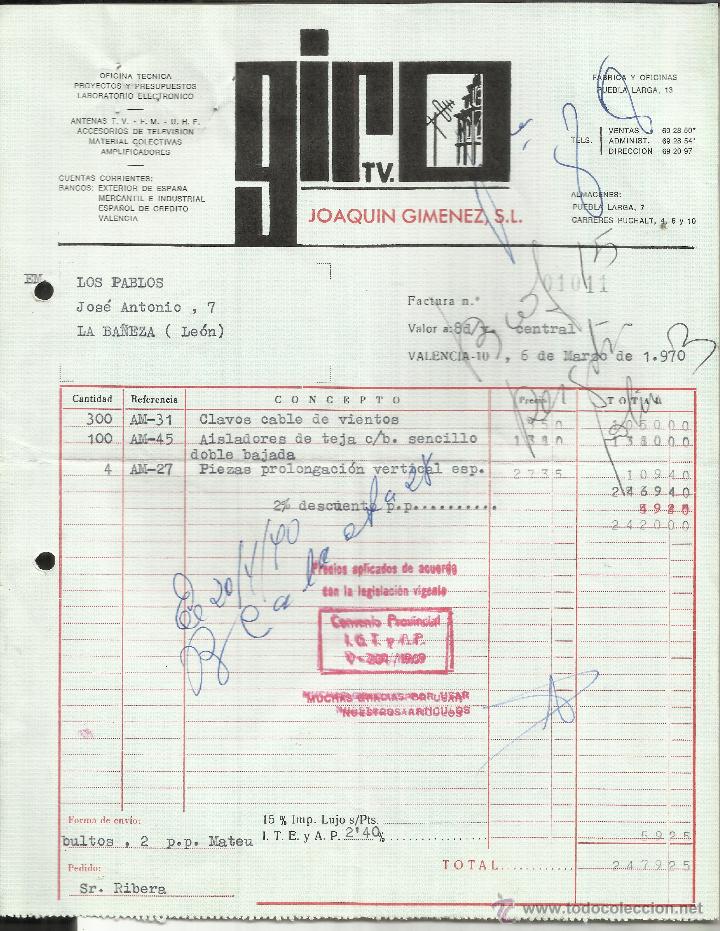 OFICINA TECNICA
PROYECTOS Y PRESUPUESTOS
LABORATORIO ELECTRONICO
ANTENAS T. V. - F. M. - U. H. F.
ACCESORIOS DE TELEVISION
MATERIAL COLECTIVAS
AMPLIFICADORES
CUENTAS CORRIENTES:
BANCOS: EXTERIOR DE ESPAÑA
MERCANTIL E INDUSTRIAL
ESPAÑOL DE CREDITO
VALENCIA
giro
TV.
JOAQUIN GIMENEZ, S.L.
FABRICA Y OFICINAS
PUEBLA LARGA, 13
TELS.
VENTAS 69 28 50*
ADMINIST. 69 28 54*
DIRECCION 69 20 97
ALMACENES:
PUEBLA LARGA, 7
CARRERES PUCHALT, 4, 6 y 10
EM.
LOS PABLOS
José Antonio , 7
LA BAÑEZA ( León)
Factura n.° 01011
Valor a: central
VALENCIA-10 , 6 de Marzo de 1.970
Cantidad Referencia CONCEPTO Precio TOTAL
300 AM-31 Clavos cable de vientos 350 105000
100 AM-45 Aisladores de teja c/b. sencillo 1380 138000
doble bajada
4 AM-27 Piezas prolongación vertical esp. 2735 10940
246940
2% descuento p.p..........
242000
Precios aplicados de acuerdo
con la legislación vigente
Convenio Provincial
I.G.T. y A.P.
MUCHAS GRACIAS POR USAR
NUESTROS ARTICULOS
Forma de envío:
bultos , 2 p.p. Mateu
15 % Imp. Lujo s/Pts.
I. T. E. y A. P. 2'40% 5925
Pedido:
Sr. Ribera
TOTAL 247925
www.todocoleccion.net